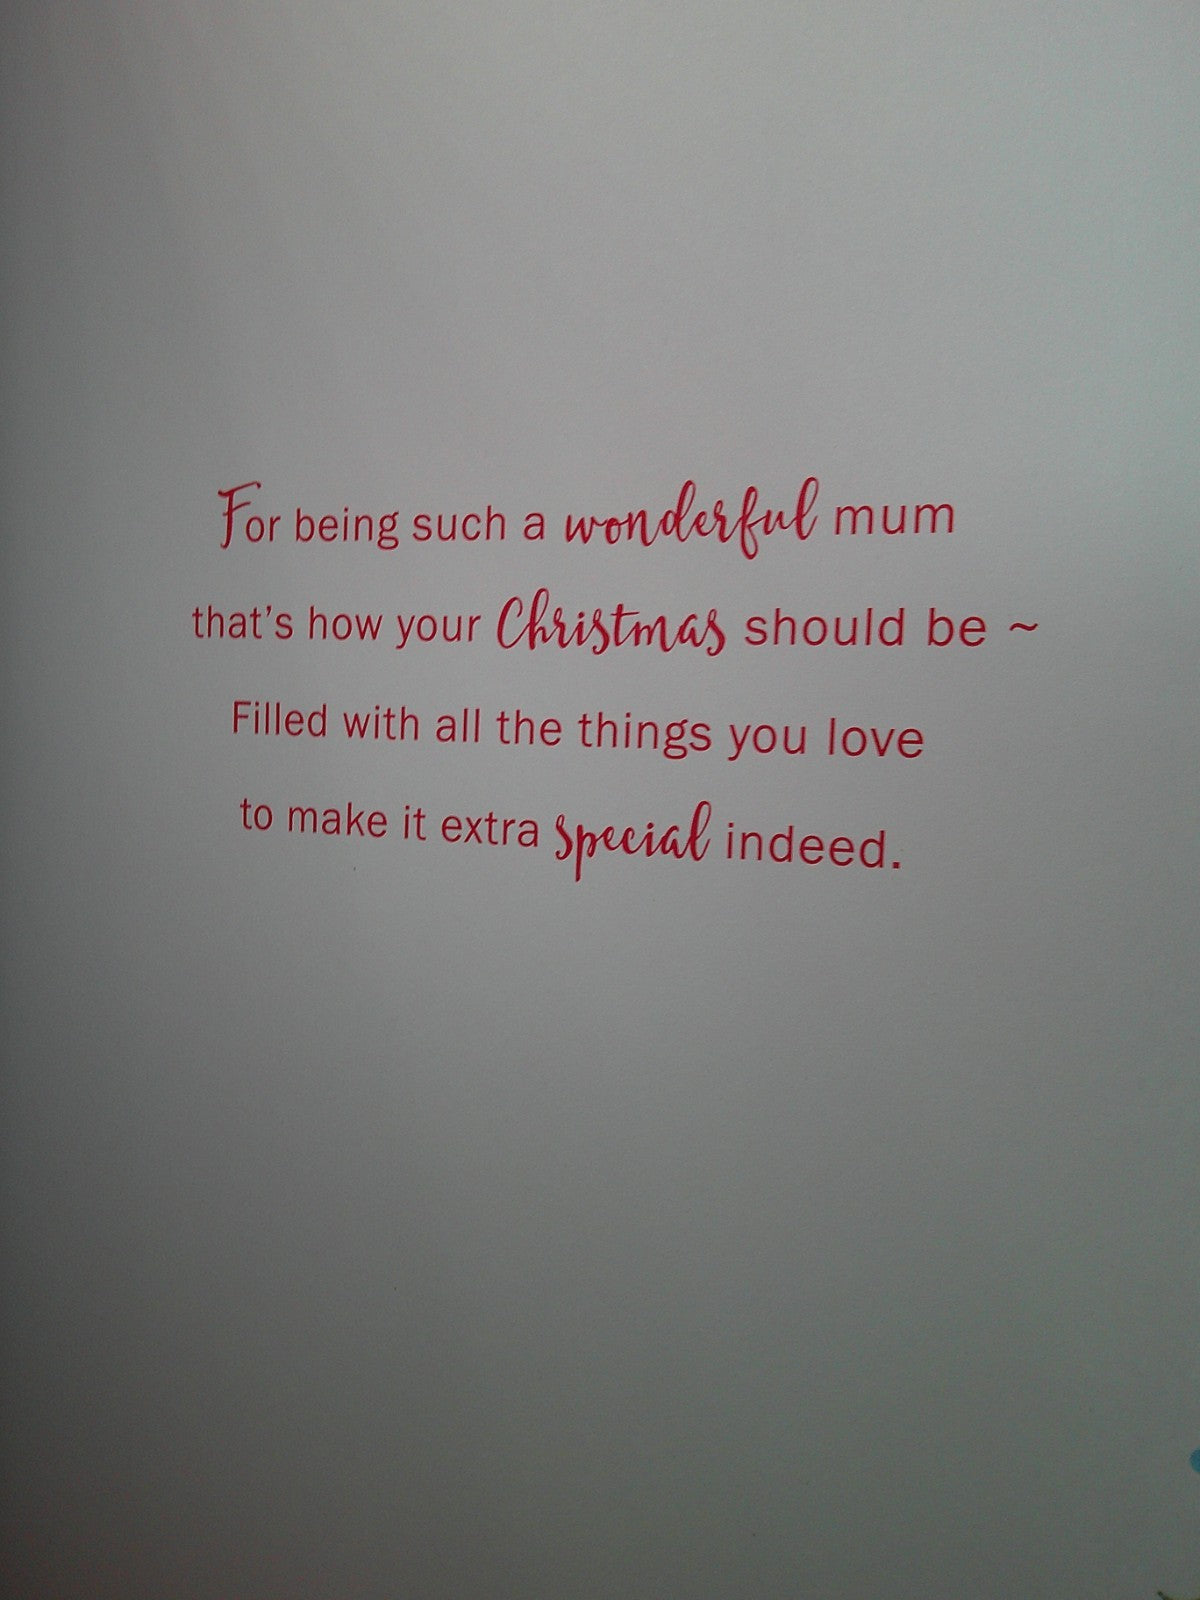 For being such a wonderful mum
that's how your Christmas should be ~
Filled with all the things you love
to make it extra special indeed.